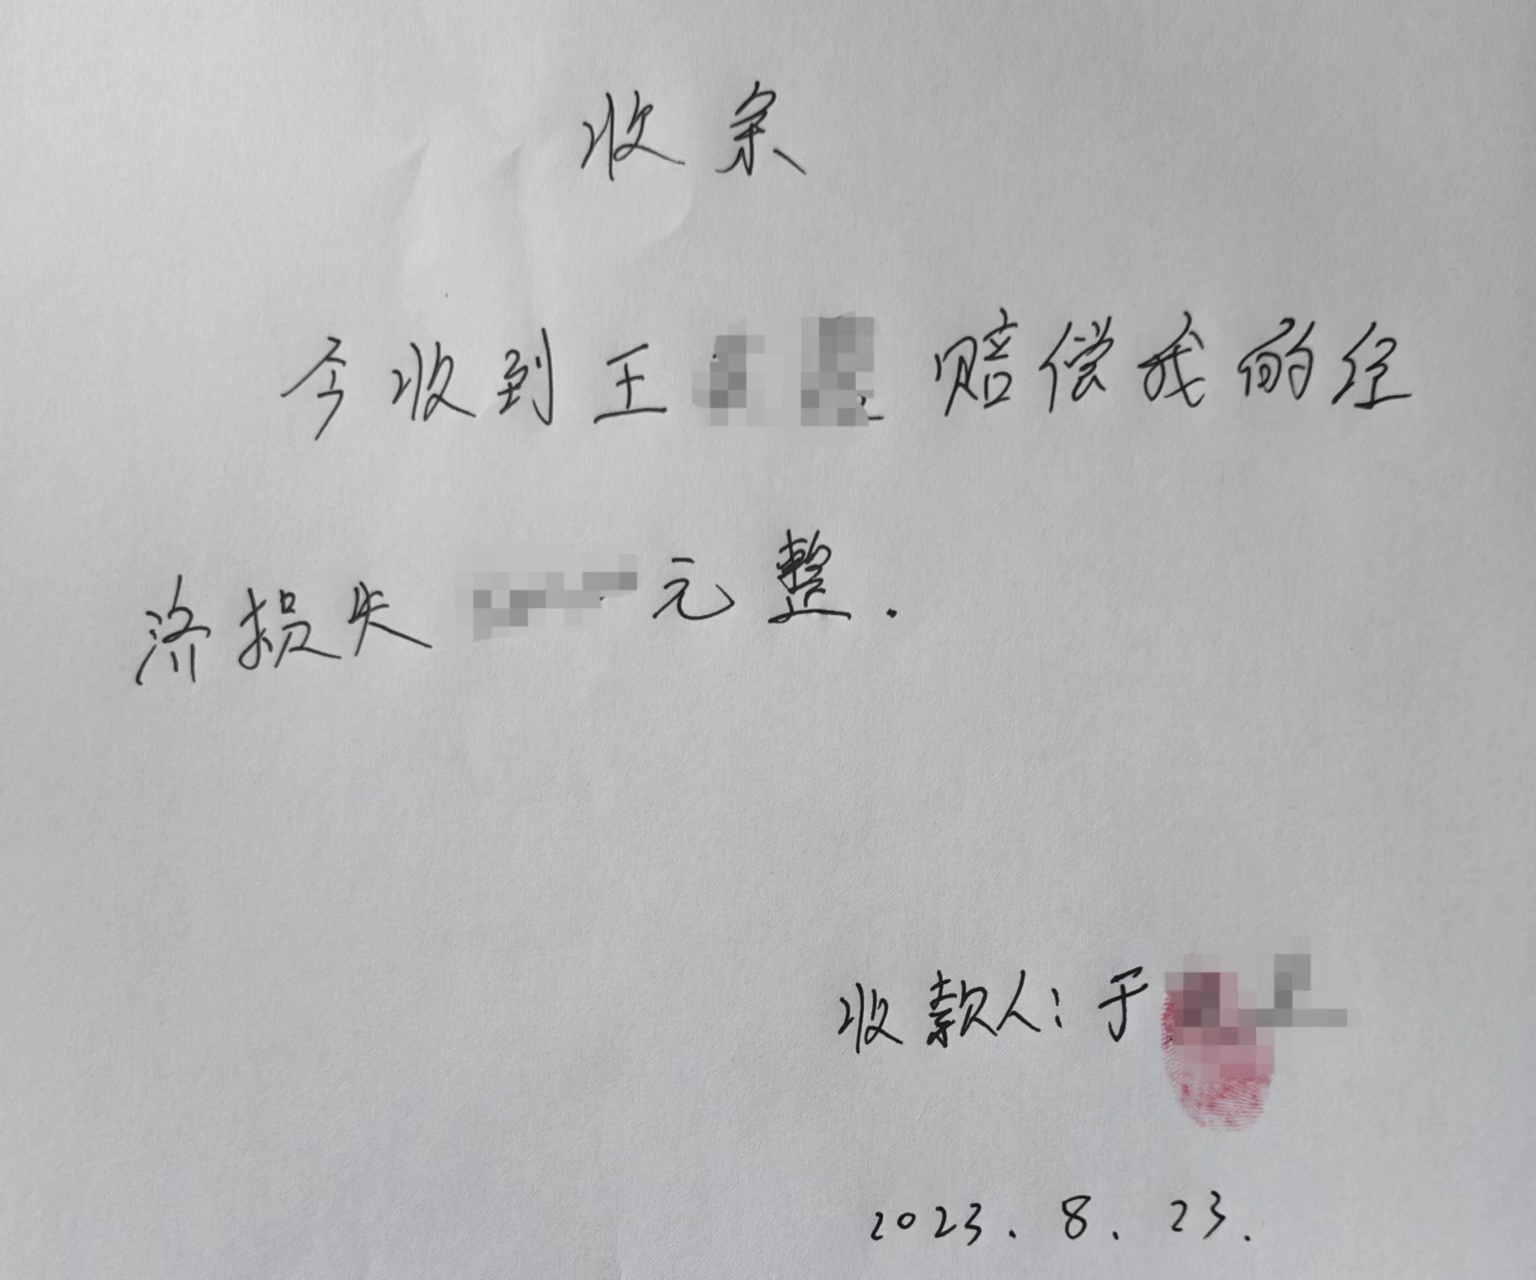 收条
今收到王 赔偿我的经
济损失 元整.
收款人:于
2023.8.23.